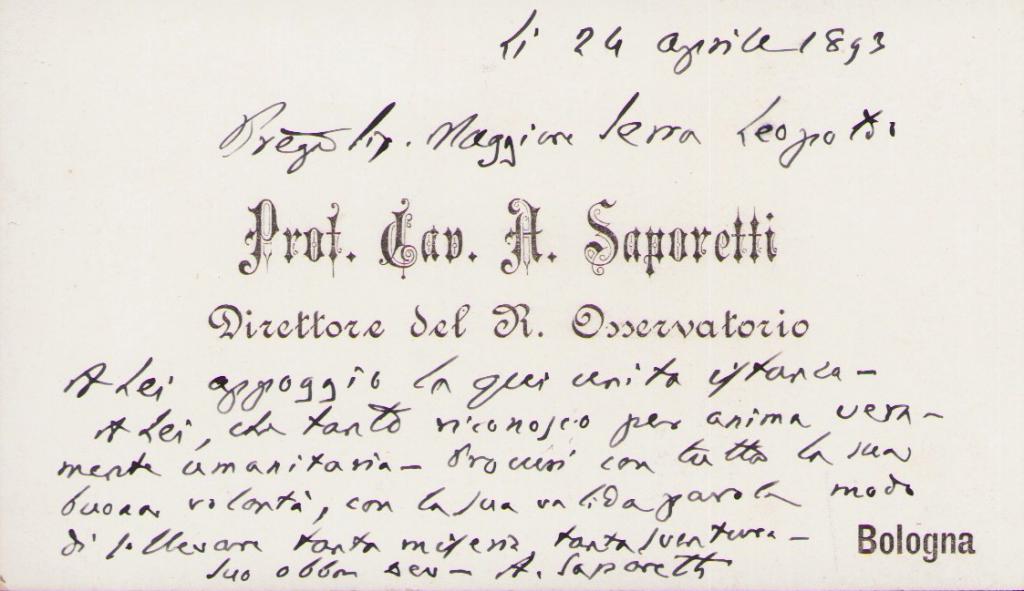 Li 24 aprile 1893
Preg Sig. Maggiore Serra Leopoldo
Prof. Cav. A. Saporetti
Direttore del R. Osservatorio
A Lei appoggio la qui unita istanza –
A Lei, che tanto riconosco per anima vera–
mente umanitaria – Procuri con tutta la sua
buona volontà, con la sua valida parola modo
di sollevare tanta miseria, tanta sventura –
Bologna
Suo obbm – A. Saporetti